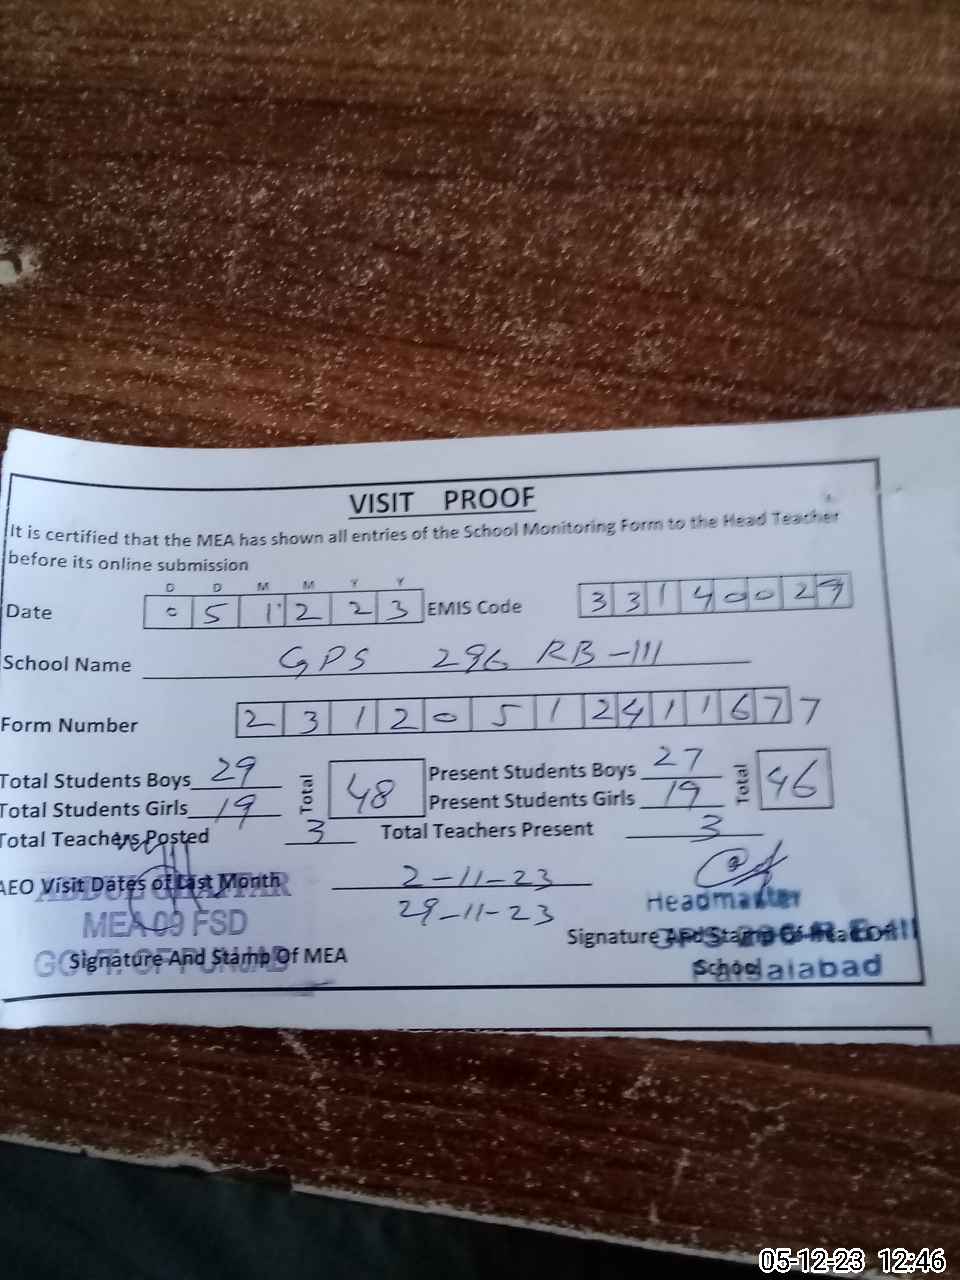 VISIT PROOF
It is certified that the MEA has shown all entries of the School Monitoring Form to the Head Teacher
before its online submission
D D M M Y Y
Date 0 5 1 2 2 3 EMIS Code 3 3 1 4 0 0 2 9
School Name GPS 296 RB-III
Form Number 2 3 1 2 0 5 1 2 4 1 1 6 7 7
Total Students Boys 29 Total 48 Present Students Boys 27 Total 46
Total Students Girls 19 Present Students Girls 19
Total Teachers Posted 3 Total Teachers Present 3
AEO Visit Dates of Last Month 2-11-23
29-11-23
ABDUL GHAFFAR
MEA 09 FSD
GOVT. OF PUNJAB
Signature And Stamp Of MEA
Headmaster
Signature And Stamp Of Head Of
School
Faisalabad
05-12-23 12:46